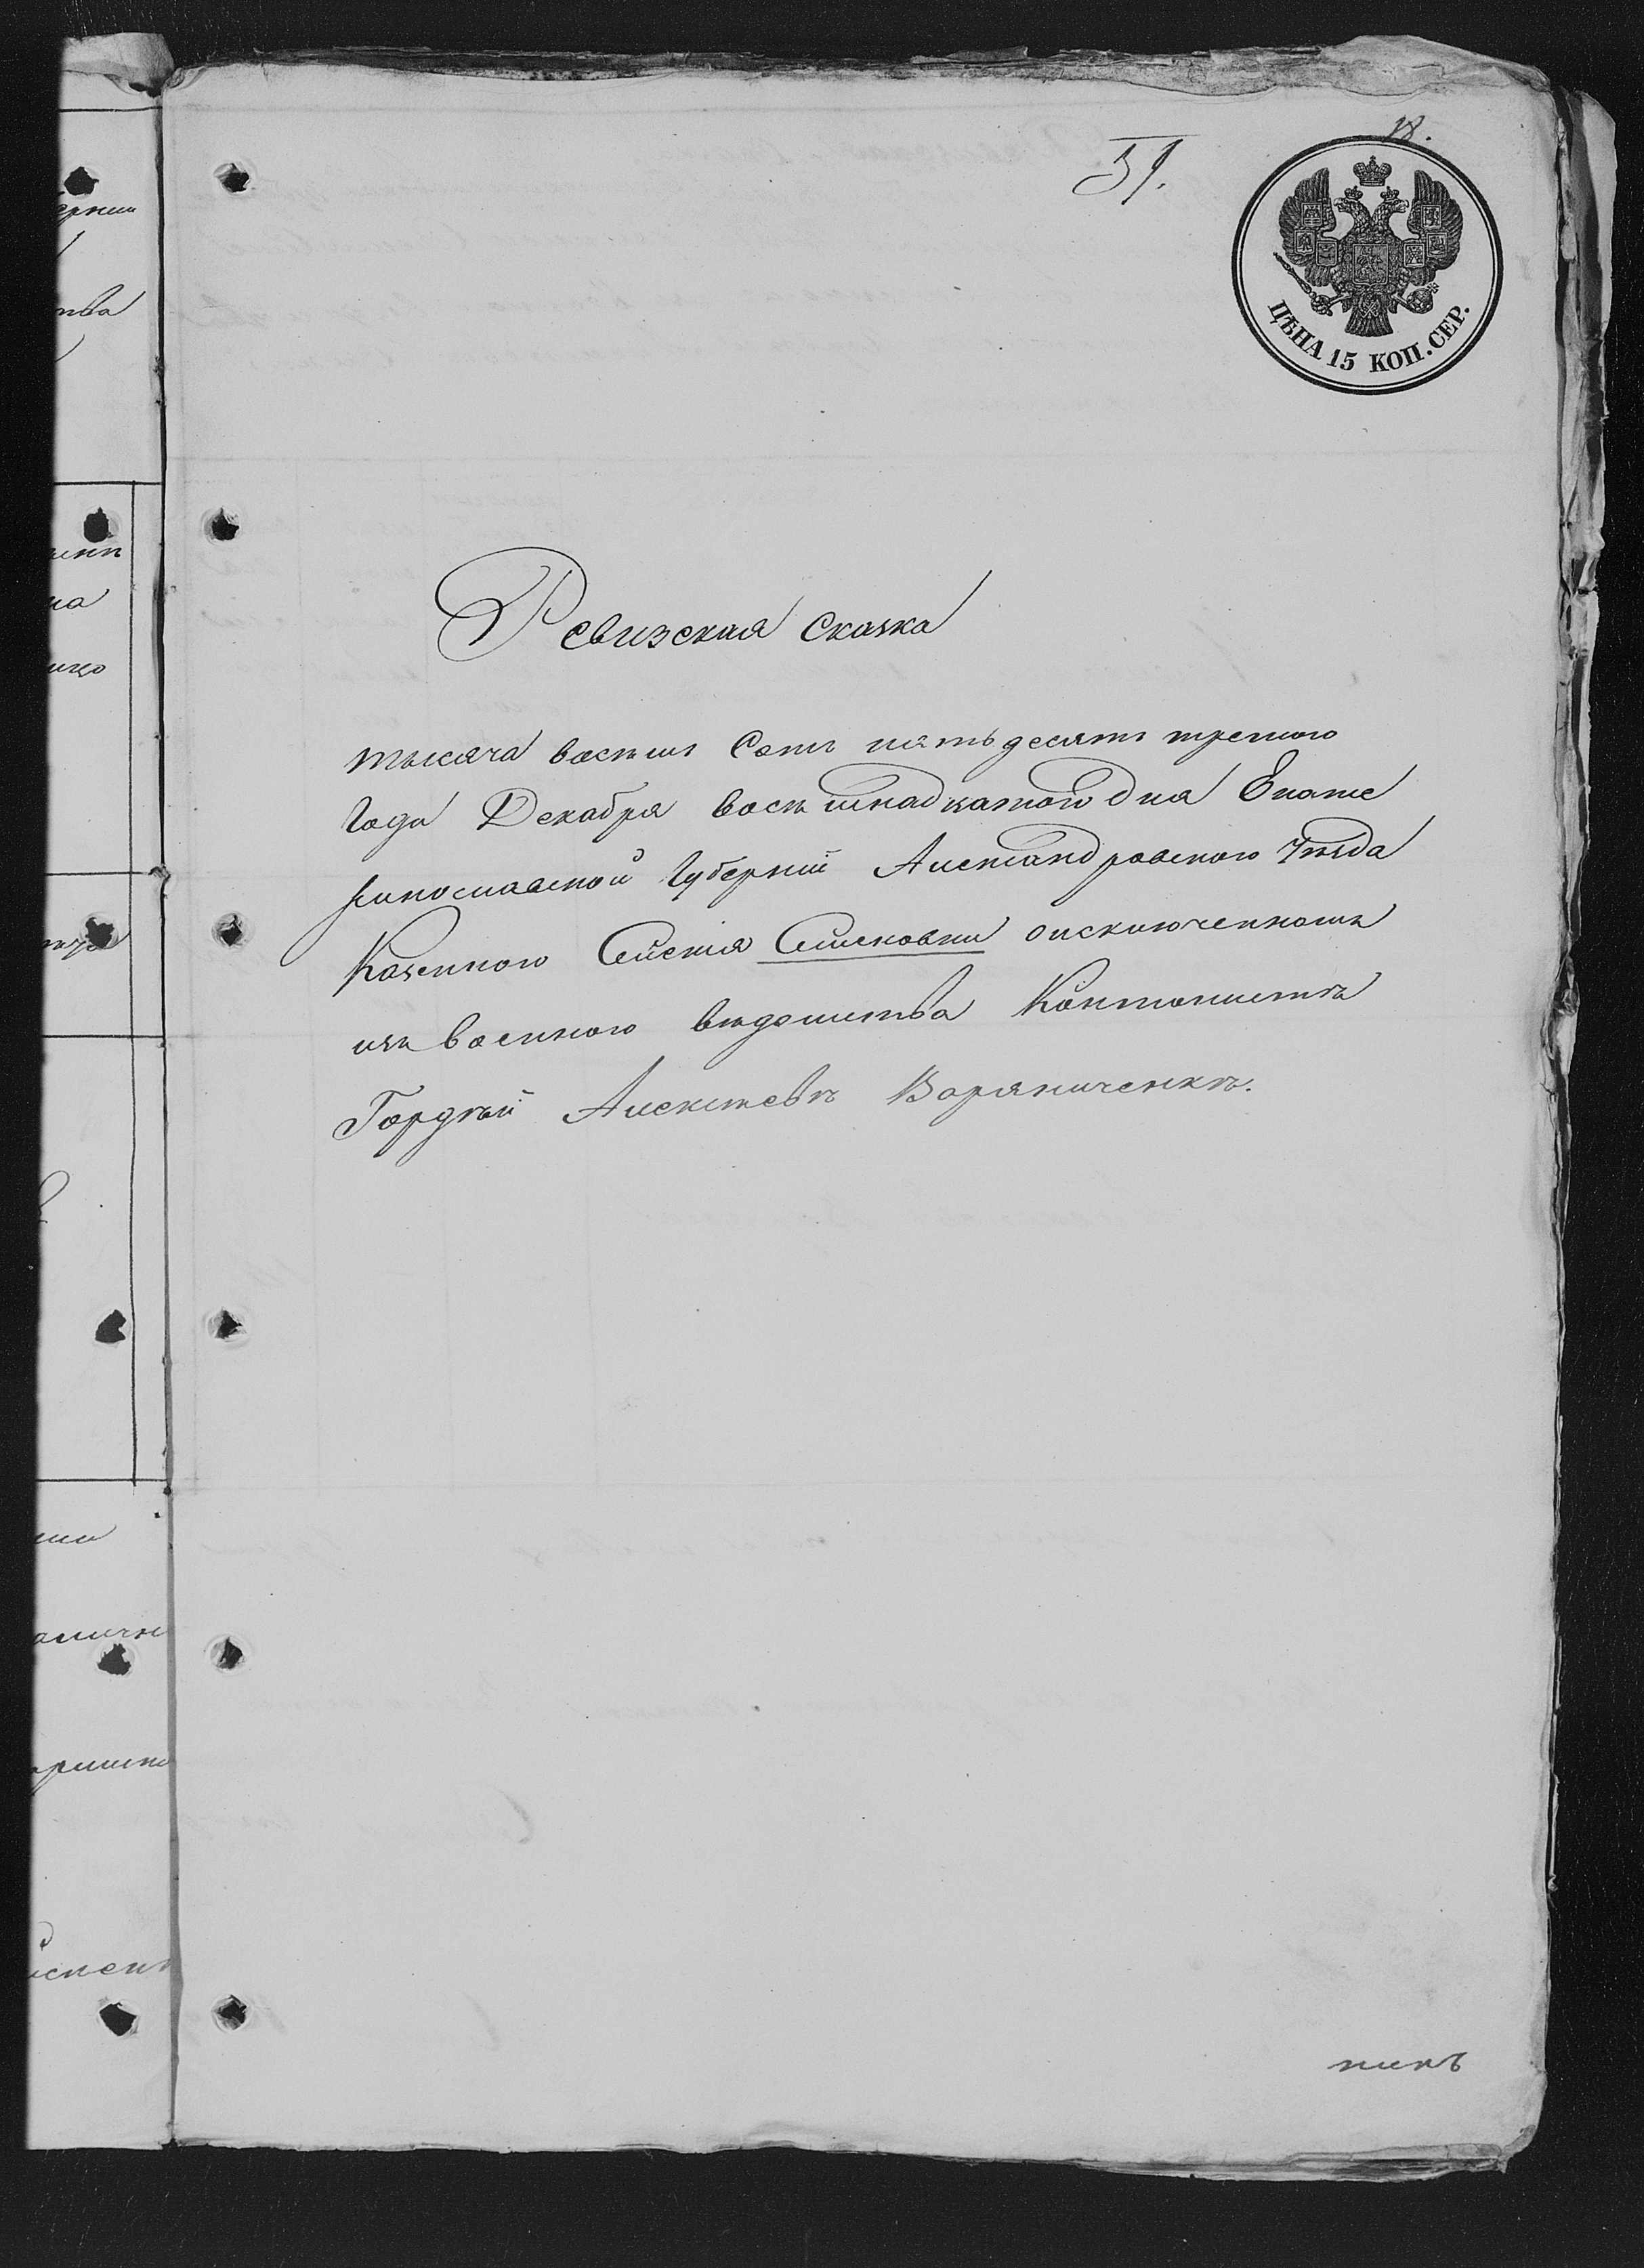 18.
51.
ЦѢНА 15 КОП. СЕР.
Ревизская сказка
тысяча восемь Сотъ пятьдесятъ третьего
Года Декабря восемьнадцатого дня Екате
ринославской Губерніи Александровского Уѣзда
Казенного Селенія Семеновки о исключенномъ
изъ военного вѣдомства Кантонистѣ
Гордѣй Алексѣевъ Воряниченкѣ.